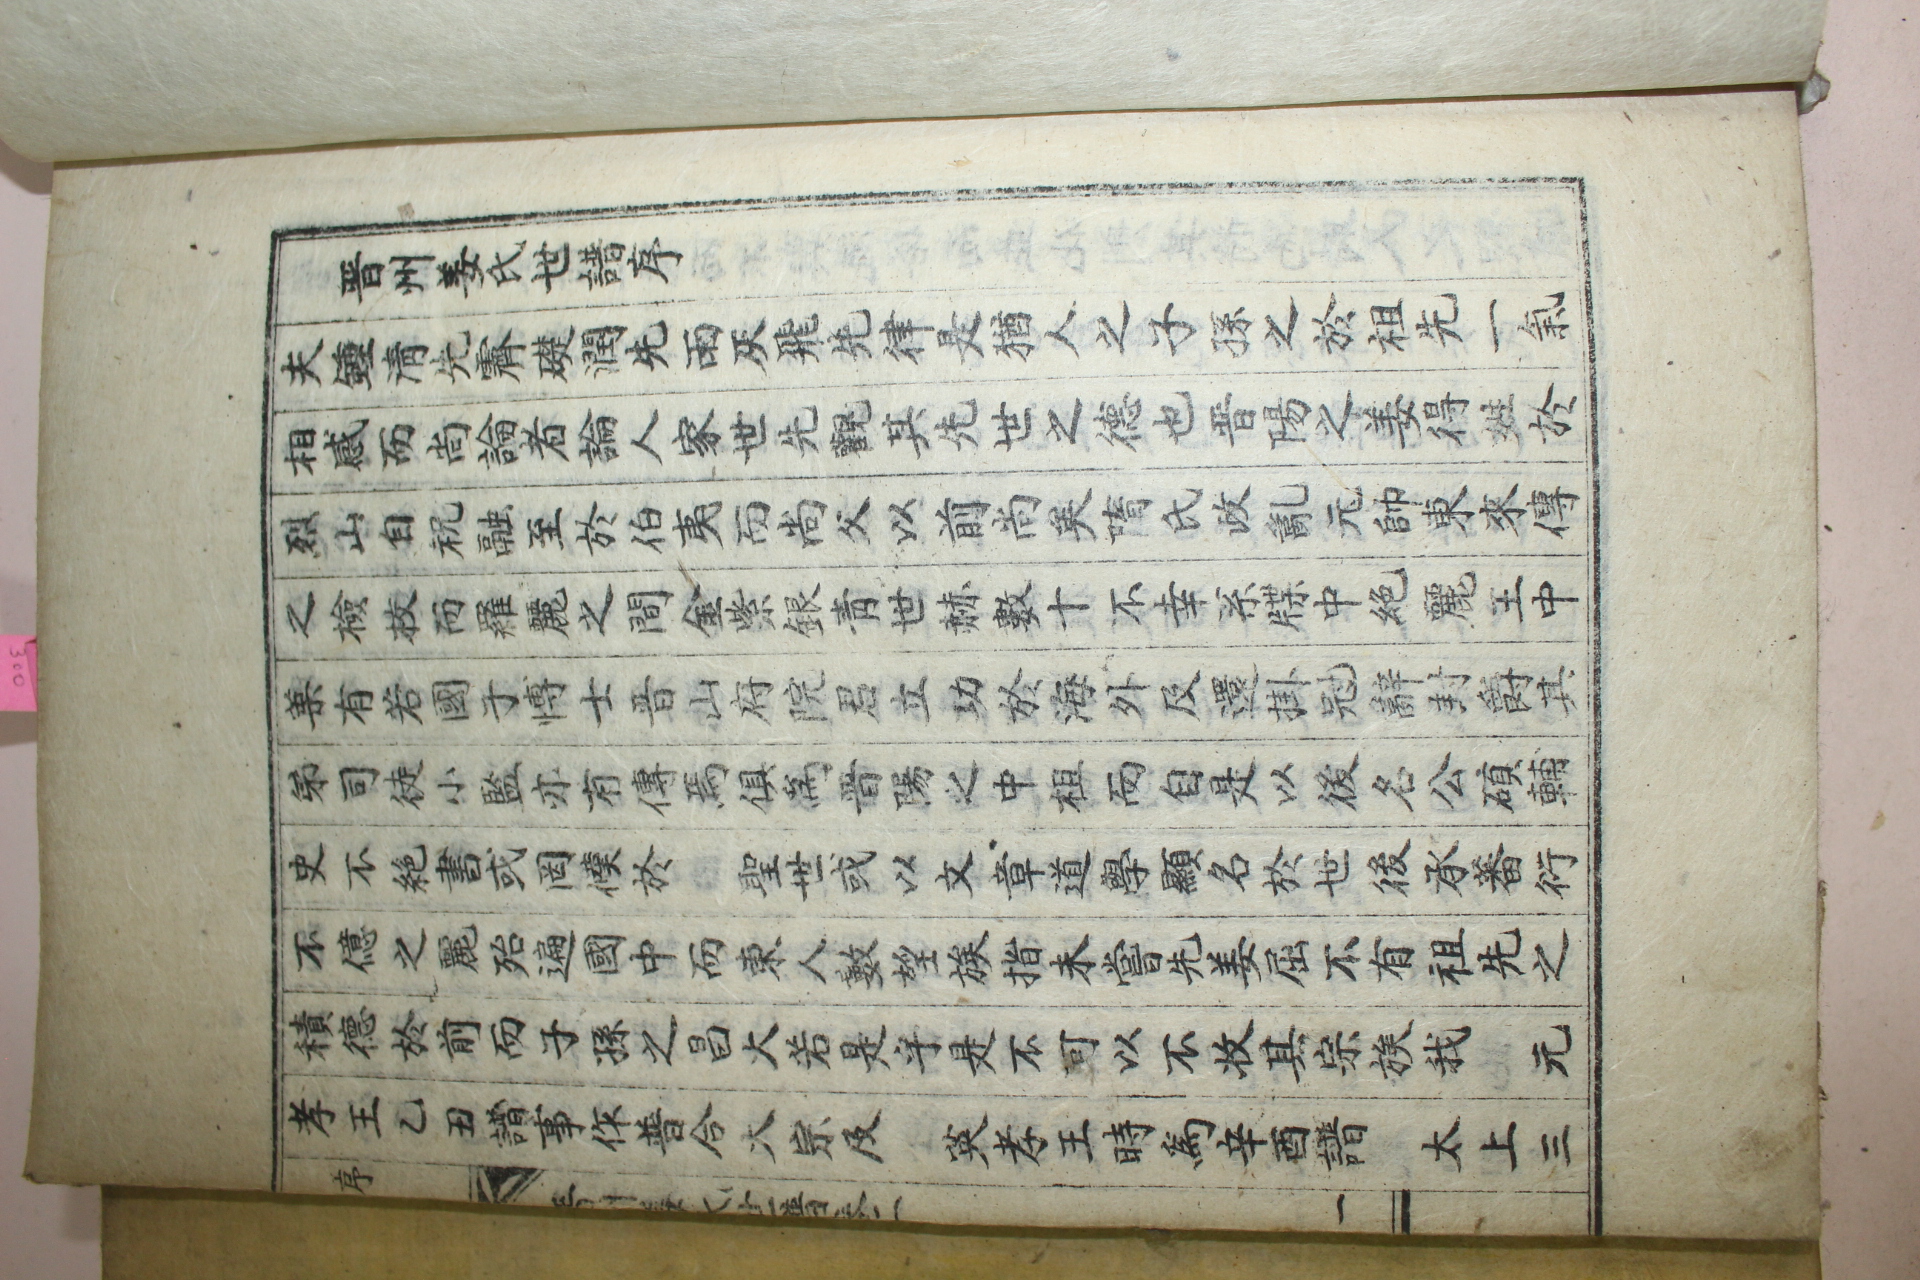 晋州姜氏世譜序
夫鍾淸先霽礎潤先雨灰飛先律是猶人之子孫之於祖先一氣
相感而尚論者論人家世先觀其先世之德也晋陽之姜得姓於
烈山自祝融至於伯夷而尚父以前尚矣嘻氏政亂元帥東來傳
之檢校而羅麗之間金紫銀靑世赫數十不幸系牒中絶麗王中
葉有若國子博士晋山府院君立功於海外及還掛冠辭封爵其
弟司徒小監亦有傳焉俱爲晋陽之中祖而自是以後名公碩輔
史不絶書或罔僕於 聖世或以文章道學顯名於世後承蕃衍
不億之麗殆遍國中而東人數望族指未嘗先姜屈不有祖先之
積德於前而子孫之昌大若是乎是不可以不收其宗族我 元
孝王乙丑譜事作普合大宗及 英孝王時爲辛酉譜 太上三
序
一